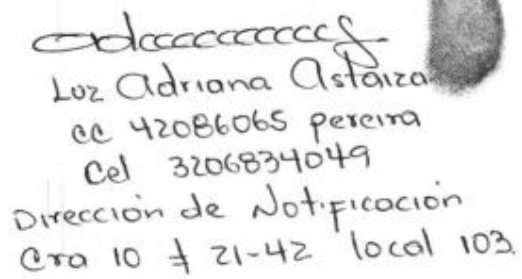 Luz Adriana Astaiza
cc 42086065 pereira
Cel 3206834049
Dirección de Notificación
Cra 10 # 21-42 local 103.